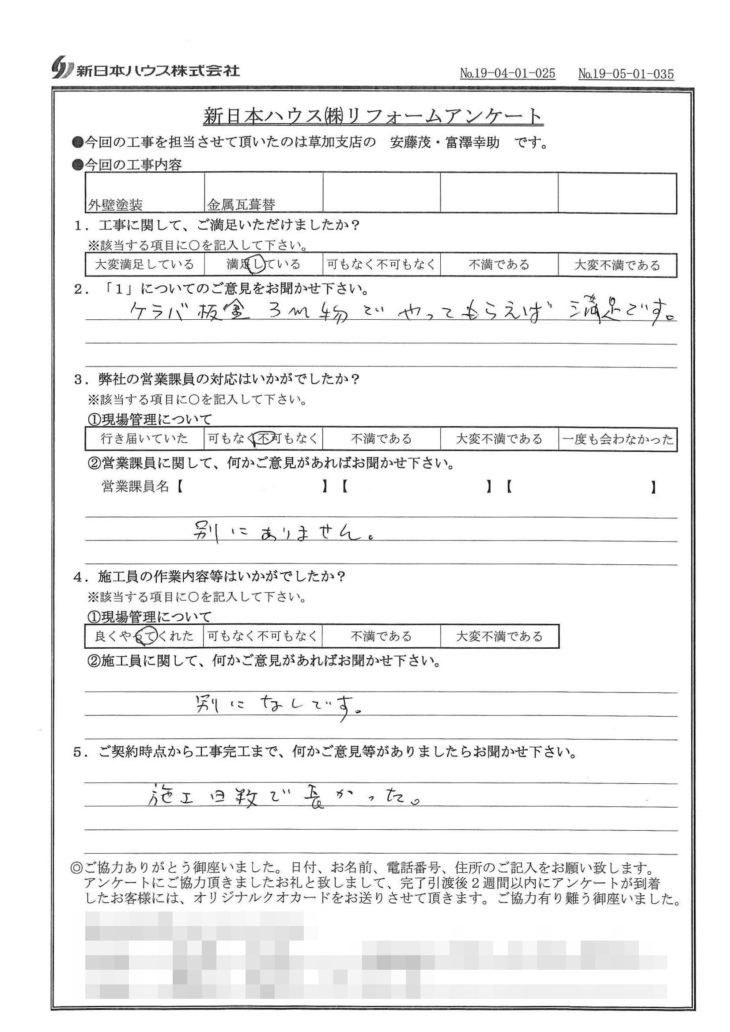 新日本ハウス株式会社
No.19-04-01-025 No.19-05-01-035
新日本ハウス㈱リフォームアンケート
●今回の工事を担当させて頂いたのは草加支店の 安藤茂・富澤幸助 です。
●今回の工事内容
外壁塗装 金属瓦葺替
1．工事に関して、ご満足いただけましたか？
※該当する項目に○を記入して下さい。
大変満足している 満足している 可もなく不可もなく 不満である 大変不満である
2．「1」についてのご意見をお聞かせ下さい。
ケラバ板金 3m物でやってもらえば 満足です。
3．弊社の営業課員の対応はいかがでしたか？
※該当する項目に○を記入して下さい。
①現場管理について
行き届いていた 可もなく不可もなく 不満である 大変不満である 一度も会わなかった
②営業課員に関して、何かご意見があればお聞かせ下さい。
営業課員名【 】【 】【 】
別にありません。
4．施工員の作業内容等はいかがでしたか？
※該当する項目に○を記入して下さい。
①現場管理について
良くやってくれた 可もなく不可もなく 不満である 大変不満である
②施工員に関して、何かご意見があればお聞かせ下さい。
別になしです。
5．ご契約時点から工事完工まで、何かご意見等がありましたらお聞かせ下さい。
施工日数で長かった。
◎ご協力ありがとう御座いました。日付、お名前、電話番号、住所のご記入をお願い致します。
アンケートにご協力頂きましたお礼と致しまして、完了引渡後２週間以内にアンケートが到着
したお客様には、オリジナルクオカードをお送りさせて頂きます。ご協力有り難う御座いました。